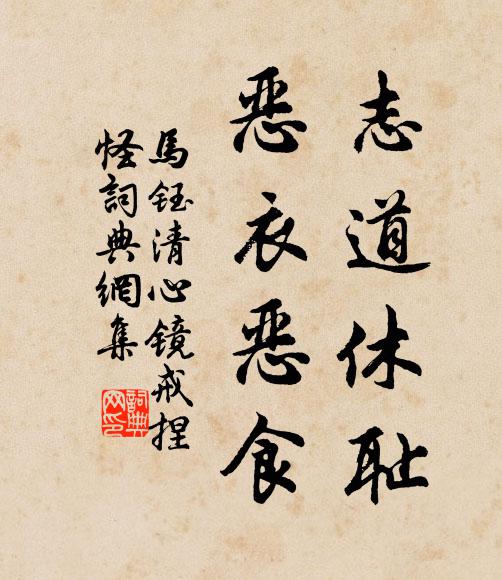 志道休耻
恶衣恶食
馬鈺清心镜戒捏
怪詞典網集
詞典网印